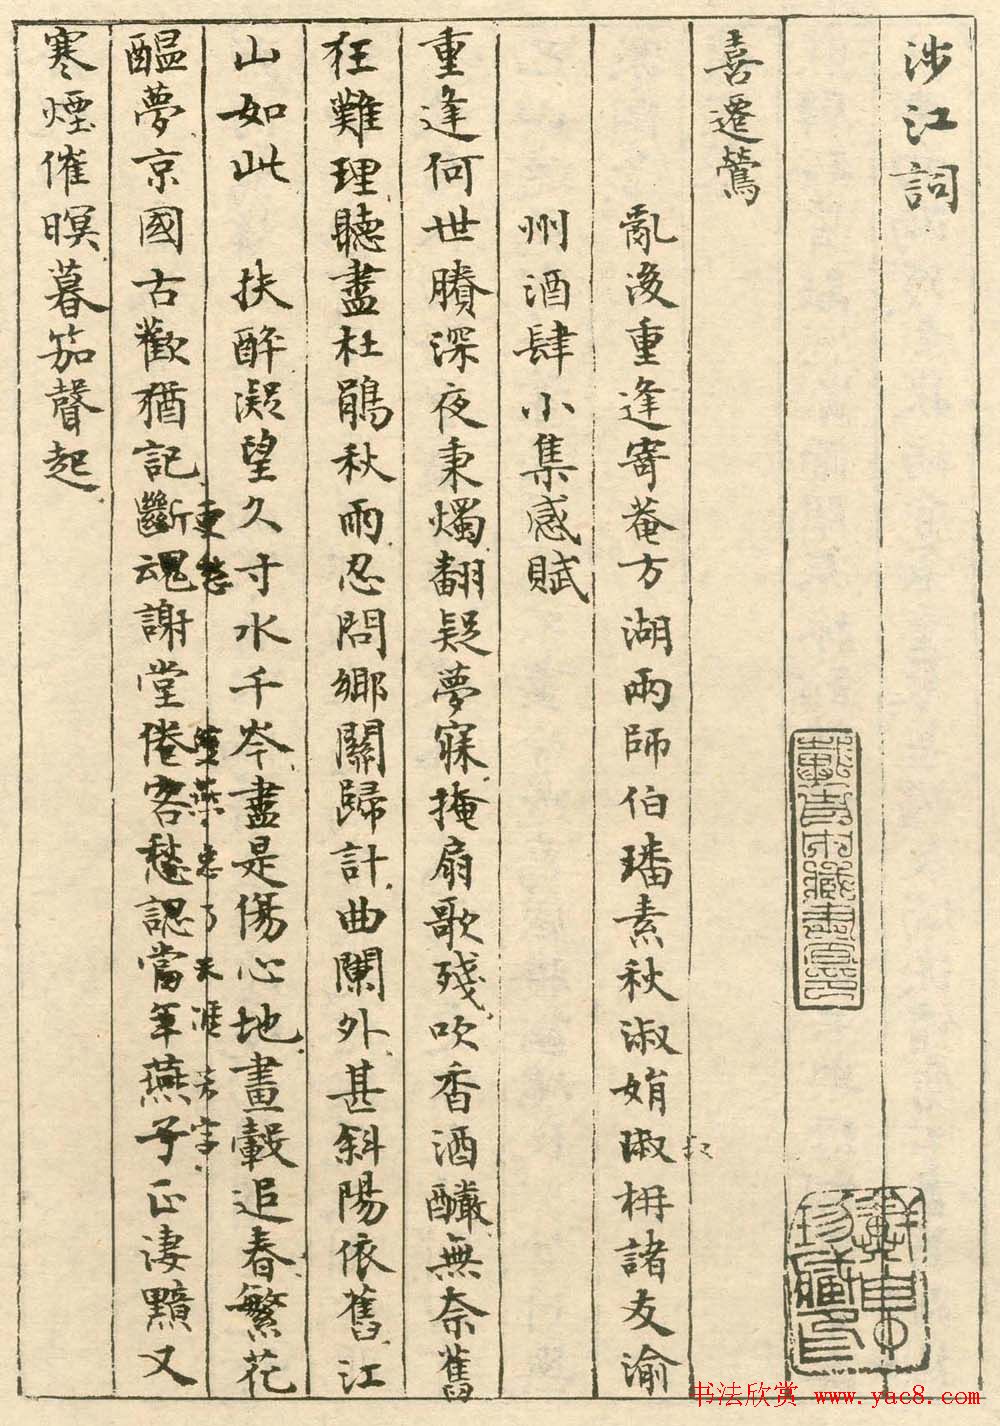 涉江詞
喜遷鶯
亂後重逢寄菴方湖兩師伯璠素秋淑娟淑柟諸友渝
州酒肆小集感賦
重逢何世賸深夜秉燭翻疑夢寐掩扇歌殘吹香酒釅無奈舊
狂難理聽盡杜鵑秋雨忍問鄉關歸計曲闌外甚斜陽依舊江
山如此 扶醉凝望久寸水千岑盡是傷心地畫轂追春繁花
醖夢京國古歡猶記斷魂謝堂倦客愁認當年燕子正淒黯又
更愁
天涯芳字
寒煙催暝暮笳聲起
書法欣賞 www.yac8.com